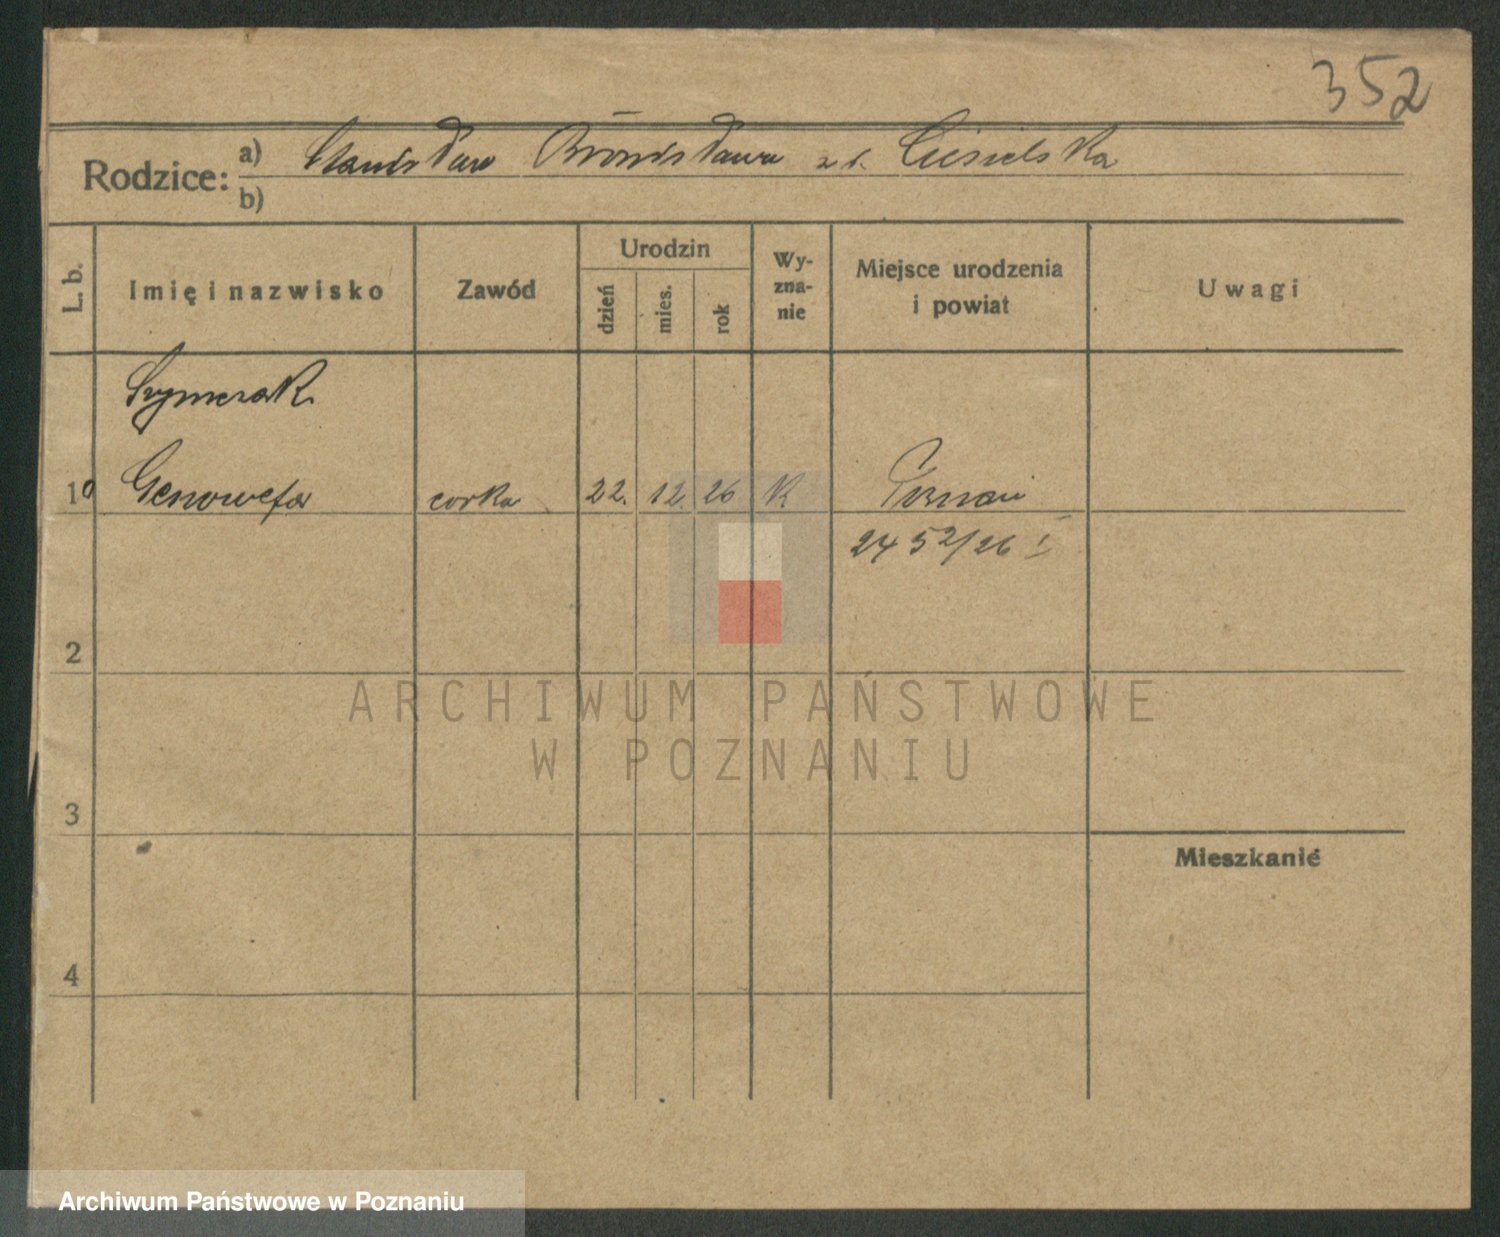 352
Rodzice: a) Stanisław Bronisława z d. Ciesielska
b)
L. b. Imię i nazwisko Zawód Urodzin dzień mies. rok Wyznanie Miejsce urodzenia i powiat Uwagi
Szymczak
1º Genowefa corka 22. 12. 26 K Poznań
2452/26 I
2
ARCHIWUM PAŃSTWOWE
W POZNANIU
3
Mieszkanie
4
Archiwum Państwowe w Poznaniu